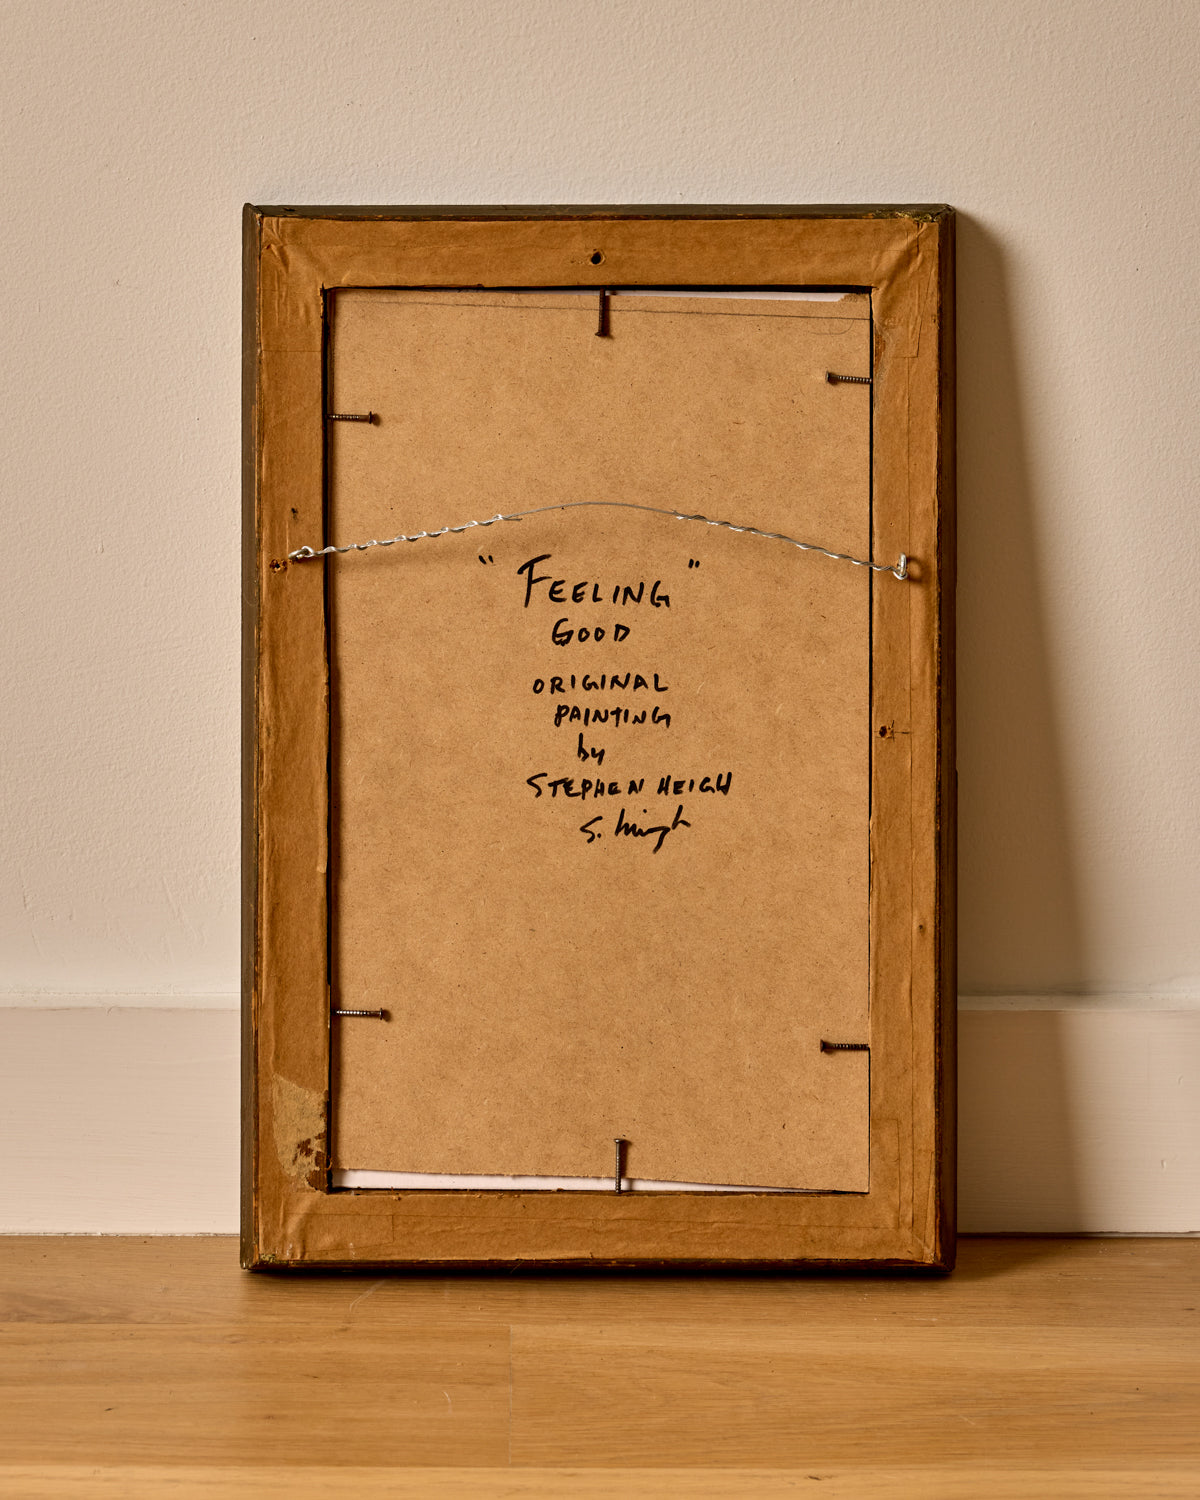 "FEELING"
GOOD
ORIGINAL
PAINTING
by
STEPHEN HEIGH
S. Heigh